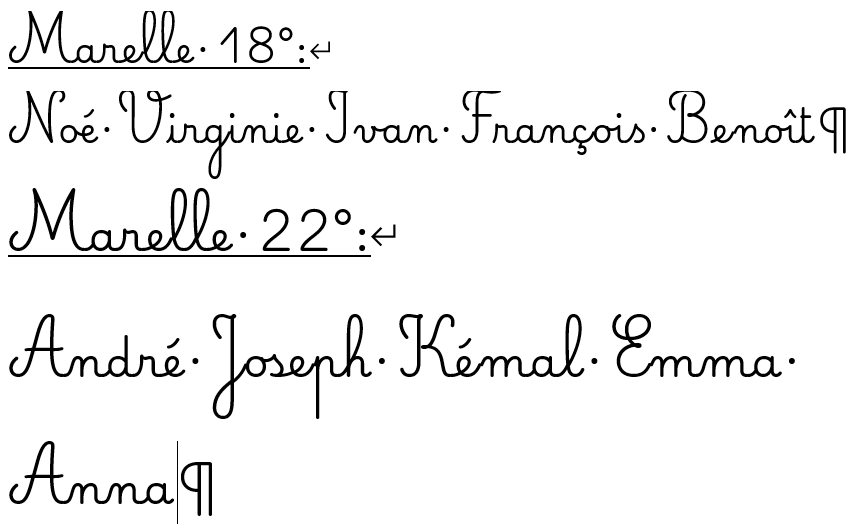 Marelle 18°:
Noé Virginie Ivan François Benoît
Marelle 22°:
André Joseph Kémal Emma
Anna